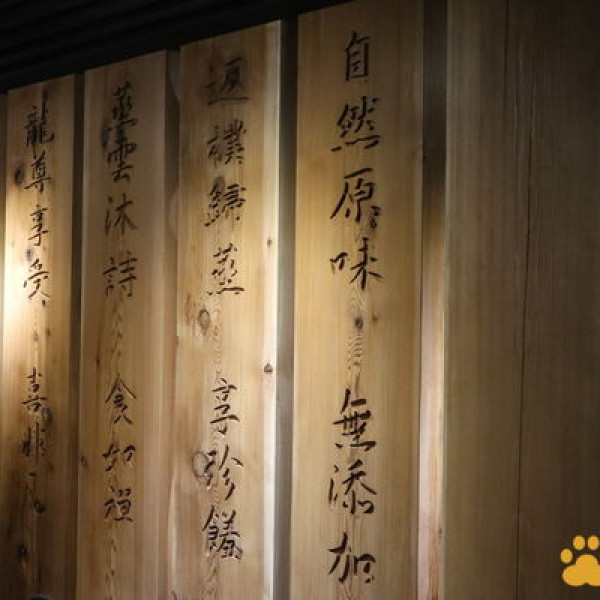 自然原味 無添加
返樸歸蒸 享珍饈
蒸雲沐詩 食如禪
龍尊享受